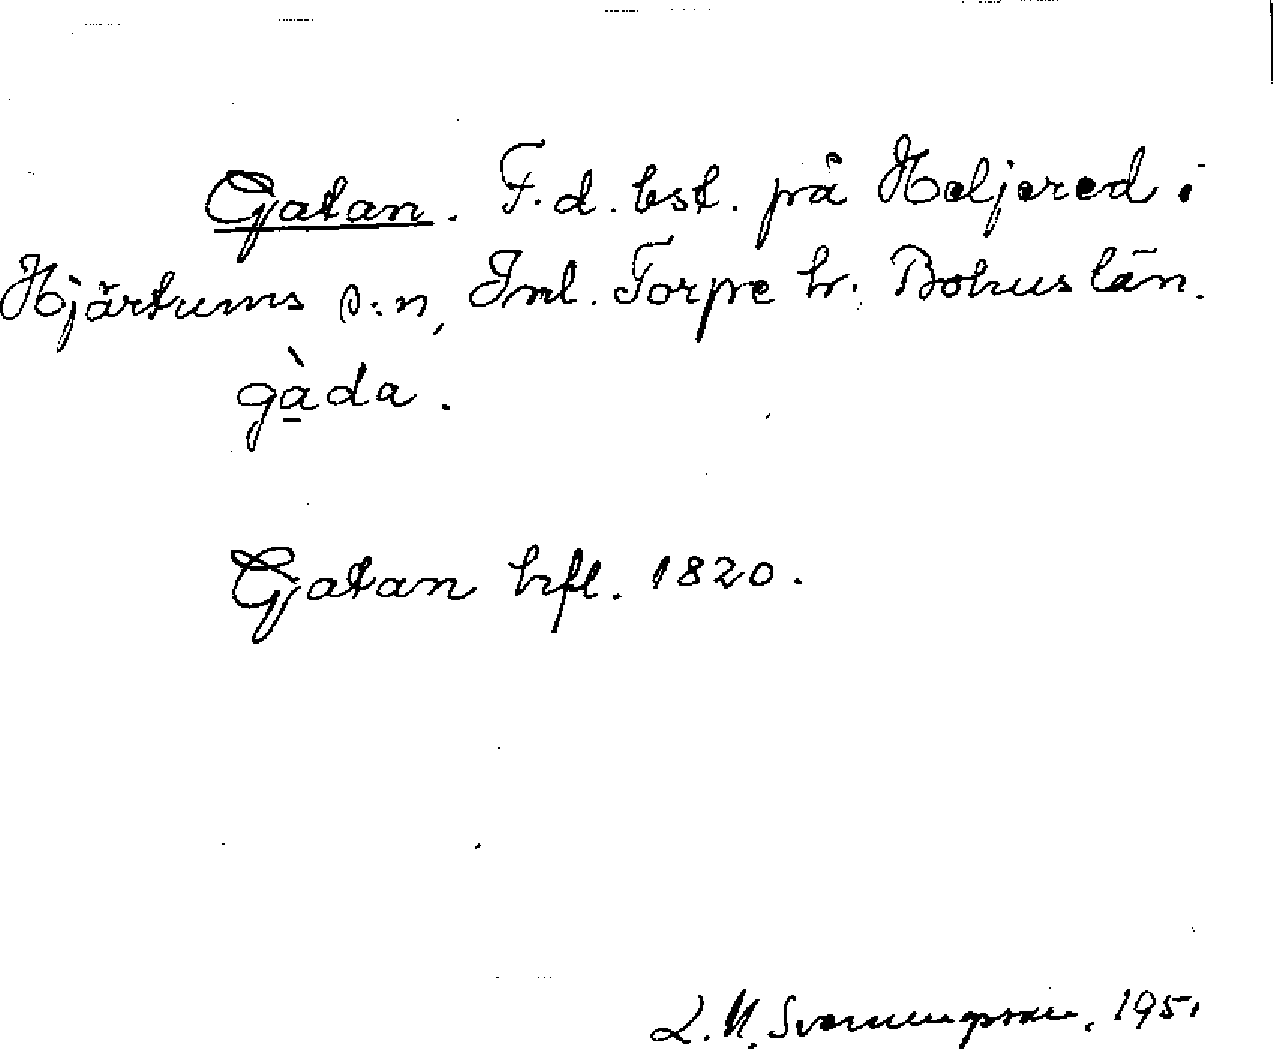 Gatan. F.d. bst. på Heljered i
Hjärtums s:n, Inl. Torpe hr. Bohuslän.
gàda.
Gatan hfl. 1820.
L.M. Svenungsson, 1951